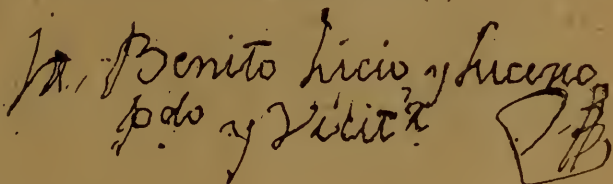 Fr. Benito Licio y Luceno
pdo y Visitr